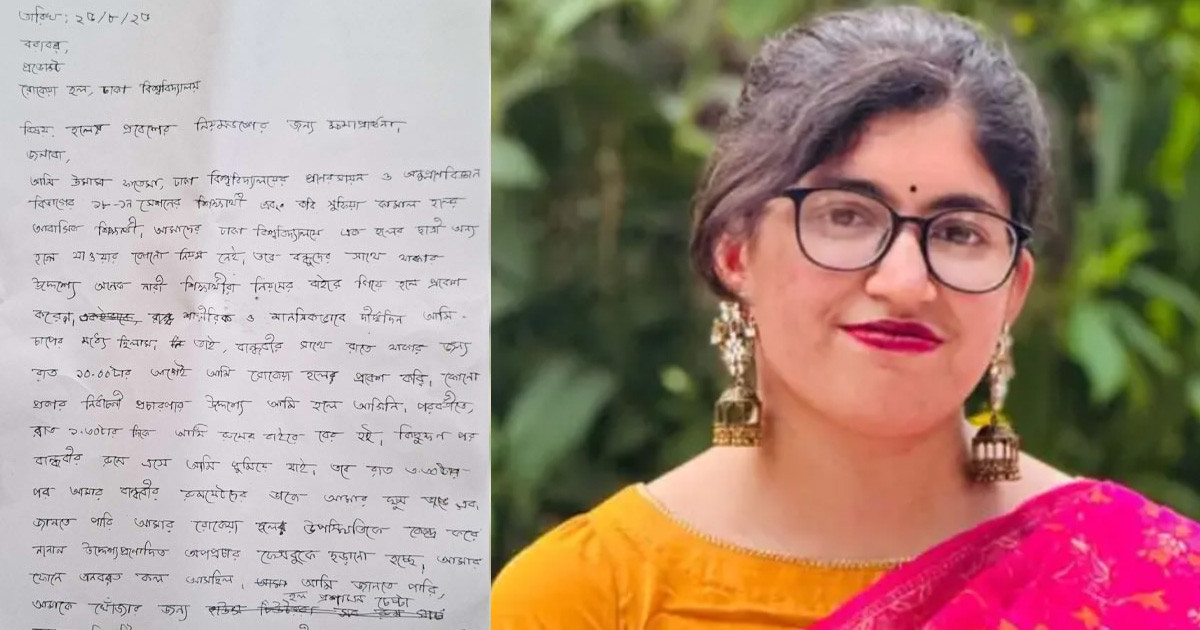 তারিখ: ২৫/৮/২৫
বরাবর,
প্রভোস্ট
রোকেয়া হল, ঢাকা বিশ্ববিদ্যালয়
বিষয়: হলের প্রবেশের নিয়মভঙ্গের জন্য ক্ষমাপ্রার্থনা,
জনাবা,
আমি উম্মে ঢাকা বিশ্ববিদ্যালয়ের প্রাণরসায়ন ও অনুপ্রাণবিজ্ঞান
বিভাগের সেশনের শিক্ষার্থী এবং কবি সুফিয়া কামাল হলের
আবাসিক শিক্ষার্থী, আমাদের ঢাকা বিশ্ববিদ্যালয়ে এক হলের ছাত্রী অন্য
হলে যাওয়ার কোনো নিয়ম নেই, তবে বন্ধুদের সাথে থাকার
উদ্দেশ্যে অনেক নারী শিক্ষার্থীরা নিয়মের বাইরে গিয়ে হলে প্রবেশ
করেন, শারীরিক ও মানসিকভাবে দীর্ঘদিন আমি
চাপের মধ্যে ছিলাম, তাই, বান্ধবীর সাথে রাতে থাকার জন্য
রাত ১০.০০টার আগেই আমি রোকেয়া হলের প্রবেশ করি, কোনো
প্রকার নির্বাচনী প্রচারণার উদ্দেশ্যে আমি হলে আসিনি, পরবর্তীতে,
রাত ১.৩০টার দিকে আমি রুমের বাইরে বের হই, কিছুক্ষণ পর
বান্ধবীর রুমে এসে আমি ঘুমিয়ে যাই, তবে রাত ৩.০০টার
পর আমার বান্ধবীর রুমমেটদের ডাকে আমার ঘুম ভাঙে এবং
জানতে পারি আমার রোকেয়া হলের উপস্থিতিকে কেন্দ্র করে
নানান উদ্দেশ্যপ্রণোদিত অপপ্রচার ফেসবুকে ছড়ানো হচ্ছে, আমার
ফোনে অনবরত কল আসছিল, আমি জানতে পারি,
হল প্রশাসন চেষ্টা
আমাকে খোঁজার জন্য